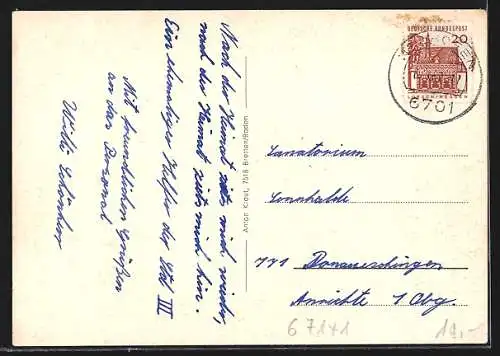 Nach der Heimat zieht's mich wieder,
nach der Heimat zieht's mich hin.
Ein ehemaliger Helfer der Stat III
Mit freundlichen Grüßen
an das Personal
Willi
Anton Krast, 7518 Bretten/Baden
DEUTSCHE BUNDESPOST
20
6701
Sanatorium
Sonnhalde
771 Donaueschingen
Anrichte 1 Obg.
6 7141
19,-